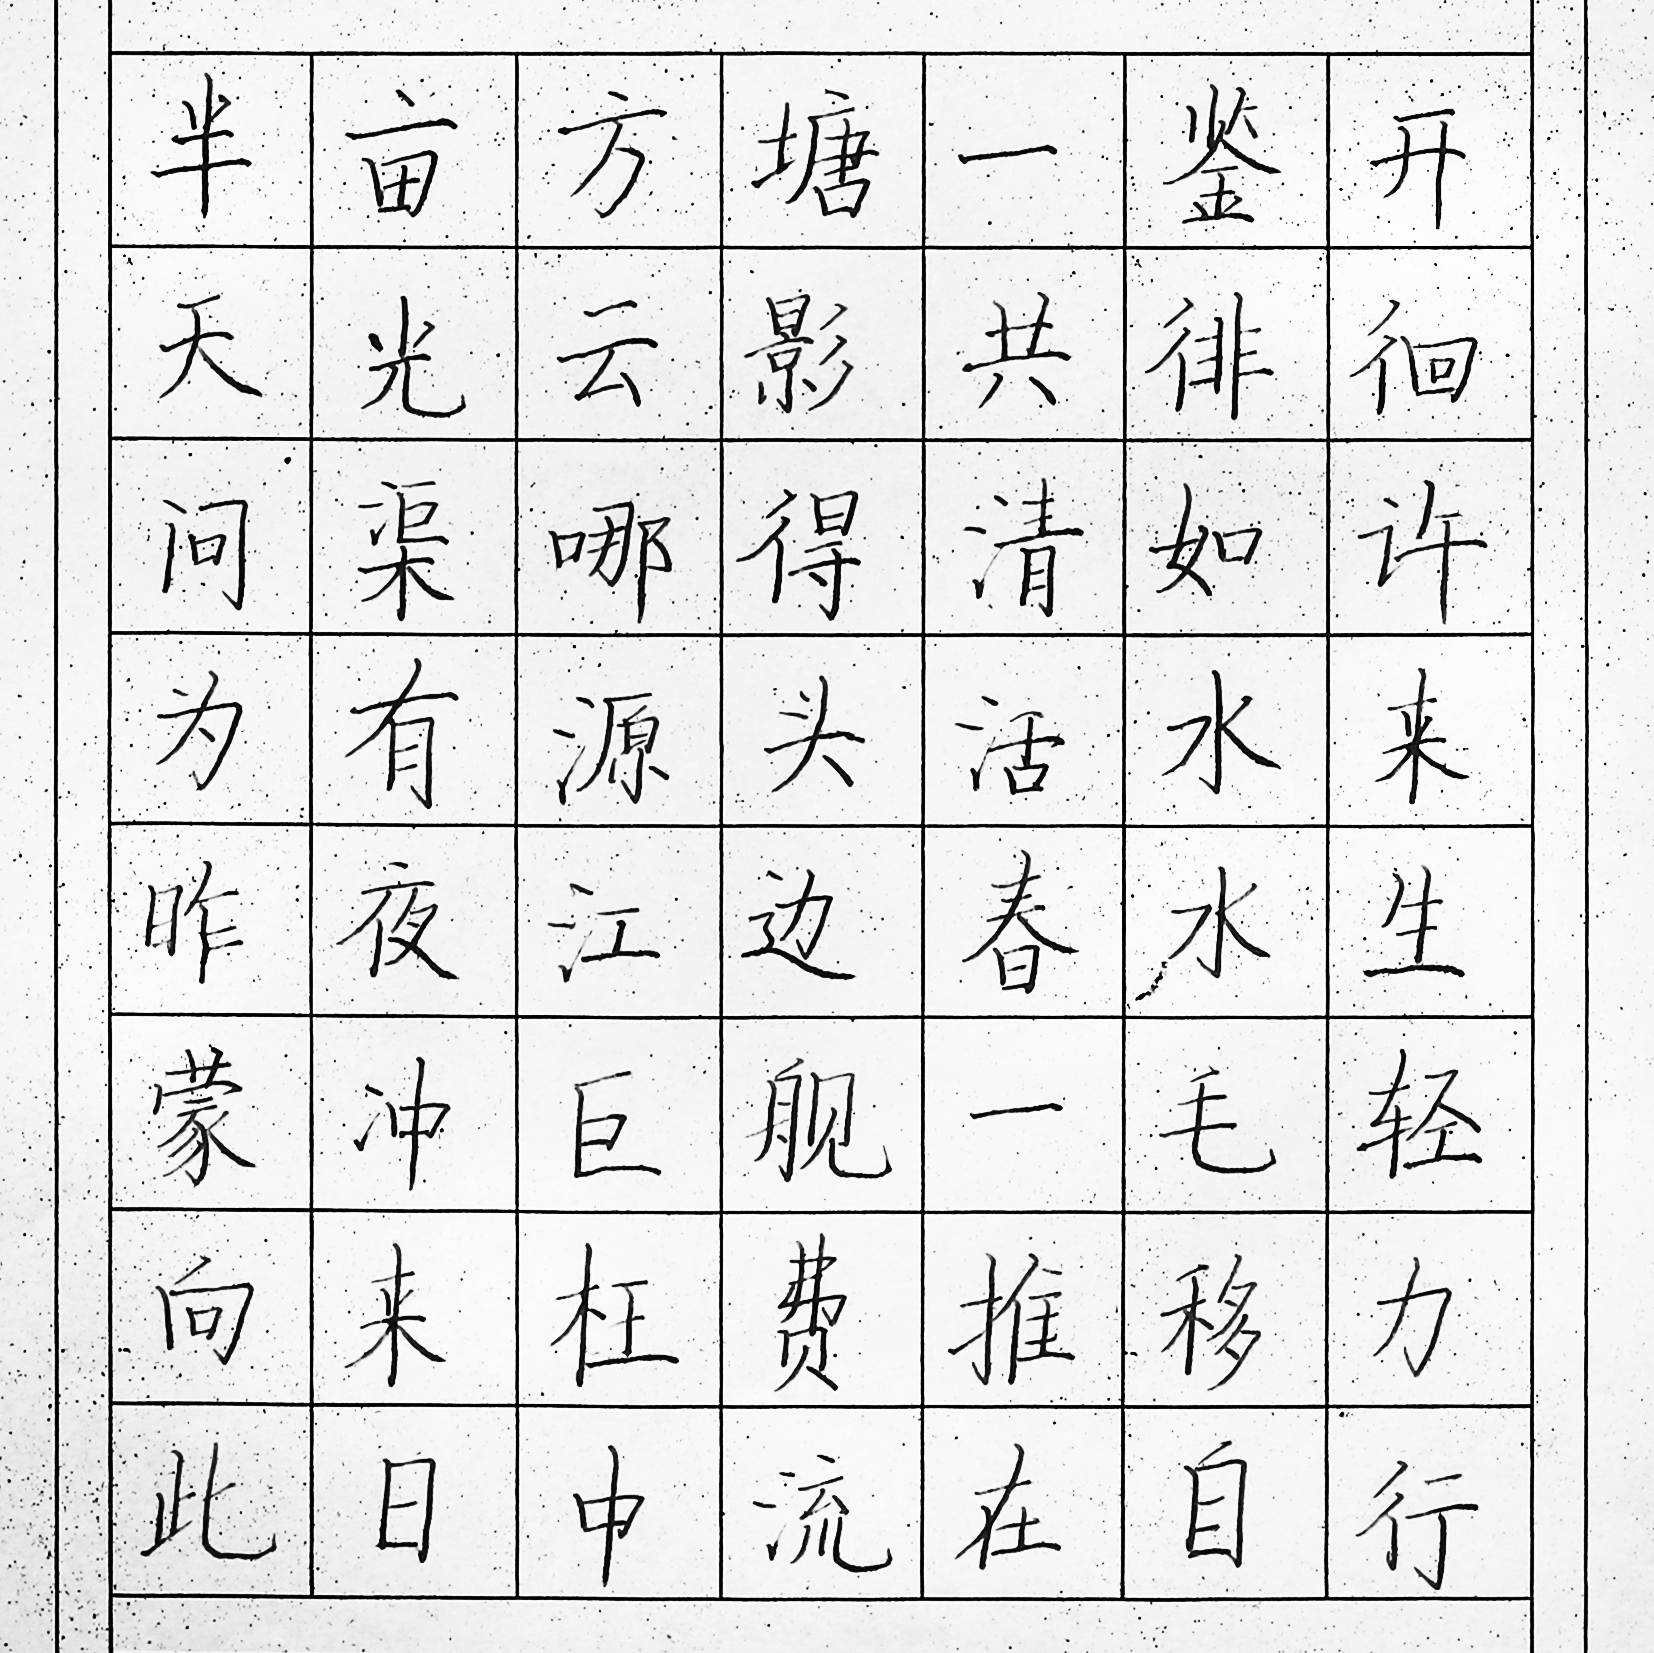 半亩方塘一鉴开
天光云影共徘徊
问渠哪得清如许
为有源头活水来
昨夜江边春水生
蒙冲巨舰一毛轻
向来枉费推移力
此日中流在自行